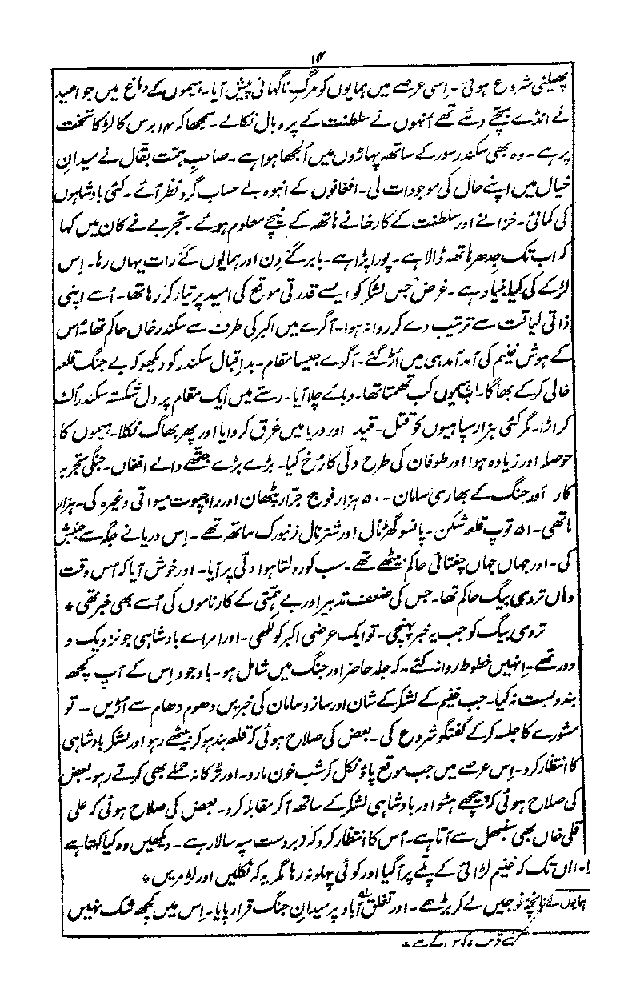 ۱۴
پھیلنی شروع ہوئی ۔ اِسی عرصے میں ہمایوں کو مرگِ ناگہانی پیش آیا ۔ ہیموں کے دماغ میں جو امید
نے انڈے بچے دئے تھے اُنہوں نے سلطنت کے پر و بال نکالے ۔ سمجھا کہ ۱۴ برس کا لڑکا تخت
پر ہے ۔ وہ بھی سکندر سور کے ساتھ پہاڑوں میں اُلجھا ہوا ہے ۔ صاحبِ ہمّت بقال نے میدانِ
خیال میں اپنے حال کی موجودات لی ۔ افغانوں کے انبوہ بے حساب گرد نظر آئے ۔ کئی بادشاہوں
کی کمائی ۔ خزانے اور سلطنت کے کارخانے ہاتھ کے نیچے معلوم ہوئے ۔ تجربے نے کان میں کہا
کہ اب تک جدھر ہاتھ ڈالا ہے ۔ پورا پڑا ہے ۔ بابر کے دن اور ہمایوں کے رات یہاں رہا ۔ اِس
لڑکے کی کیا بنیاد ہے ۔ غرض جس لشکر کو ایسے قدرتی موقع کی امید پر تیار کر رہا تھا ۔ اُسے اپنی
ذاتی لیاقت سے ترتیب دے کر روانہ ہوا ۔ آگرے میں اکبر کی طرف سے سکندر خاں حاکم تھا ۔ اُس
کے ہوش غنیم کی آمد آمد ہی میں اُڑ گئے ۔ آگرے جیسا مقام ۔ بداقبال سکندر کو دیکھو کہ بے جنگ قلعہ
خالی کرکے بھاگا ۔ ہیموں کب تھمتا تھا ۔ دبائے چلا آیا ۔ رستے میں ایک مقام پر دل شکستہ سکندر اُلٹ
کر اڑا ۔ مگر کئی ہزار سپاہیوں کو قتل ۔ قید اور دریا میں غرق کروایا اور پھر بھاگ نکلا ۔ ہیموں کا
حوصلہ اور زیادہ ہوا اور طوفان کی طرح دلّی کا رُخ کیا ۔ بڑے بڑے جتھے والے افغان ۔ جنگی تجربہ
کار اور جنگ کے بھاری سامان ۔ ۵۰ ہزار فوج جرّار پٹھان اور راجپوت میواتی وغیرہ کی ۔ ہزار
ہاتھی ۔ ۵۱ توپ قلعہ شکن ۔ پانسو گھڑنال اور شترنال زنبورک ساتھ تھے ۔ اِس دریا نے جگہ سے جنبش
کی ۔ اور جہاں جہاں چغتائی حاکم بیٹھے تھے ۔ سب کو رولتا ہوا دلّی پر آیا ۔ اور خوش آیا کہ اُس وقت
وہاں تردی بیگ حاکم تھا ۔ جس کی ضعفِ تدبیر اور بے ہمتی کے کارناموں کی اُسے بھی خبر تھی *
تردی بیگ کو جب یہ خبر پہنچی ۔ تو ایک عرضی اکبر کو لکھی ۔ اور اُمراے بادشاہی جو نزدیک و
دور تھے ۔ اِنہیں خطوط روانہ کئے ۔ کہ جلد حاضر اور جنگ میں شامل ہو ۔ باوجود اِس کے آپ کچھ
بندوبست نہ کیا ۔ جب غنیم کے لشکر کے شان اور ساز و سامان کی خبریں دھوم دھام سے اُڑیں ۔ تو
مشورے کا جلسہ کرکے گفتگو شروع کی ۔ بعض کی صلاح ہوئی کہ قلعہ بند ہو کر بیٹھے رہو اور لشکر بادشاہی
کا انتظار کرو ۔ اِس عرصے میں جب موقع پاؤ نکل کر شب خون مارو ۔ اور ترکانہ حملے بھی کرتے رہو ۔ بعض
کی صلاح ہوئی کہ پیچھے ہٹو اور بادشاہی لشکر کے ساتھ آ کر مقابلہ کرو ۔ بعض کی صلاح ہوئی کہ علی
قلی خاں بھی سنبھل سے آتا ہے ۔ اُس کا انتظار کرو کہ زبردست سپہ سالار ہے ۔ دیکھیں وہ کیا کہتا ہے
اتنے تک کہ غنیم لڑائی کے پلّے پر آ گیا اور کوئی پہلو نہ رہا مگر یہ کہ نکلیں اور لڑ مریں *
چنانچہ فوجیں لے کر بڑھے ۔ اور تغلق آباد پر میدانِ جنگ قرار پایا ۔ اِس میں کچھ شک نہیں